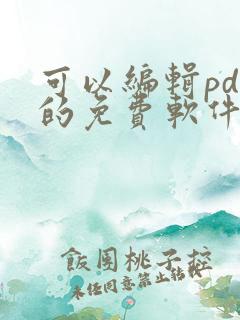 可以編輯pd
的免費軟件
飯團桃子控
未任同意禁止轉載